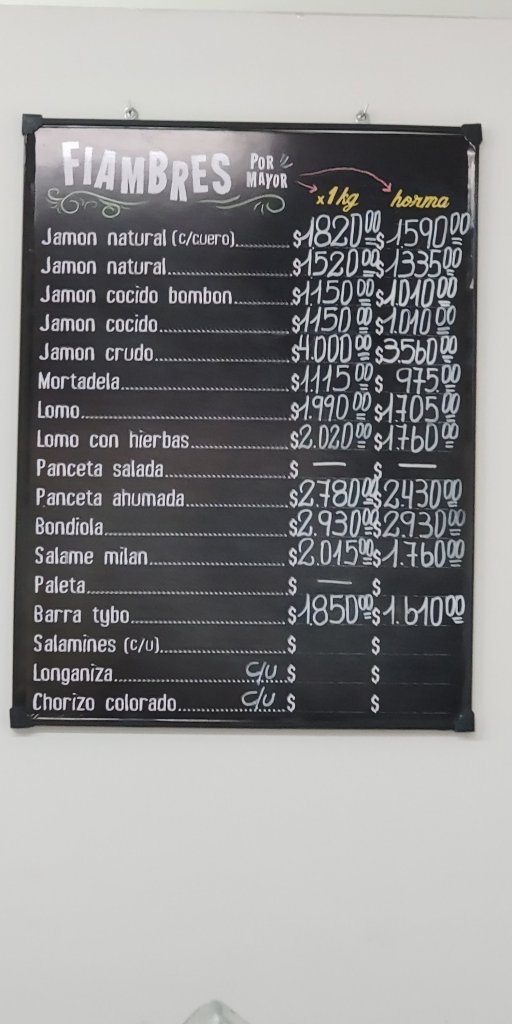 FIAMBRES POR MAYOR
x1kg horma
Jamon natural (c/cuero)............ $1820.00 $1590.00
Jamon natural............ $1520.00 $1335.00
Jamon cocido bombon............ $1.150.00 $1.010.00
Jamon cocido............ $1150.00 $1.010.00
Jamon crudo............ $4.000.00 $3560.00
Mortadela............ $1.115.00 $ 975.00
Lomo............ $1.990.00 $1705.00
Lomo con hierbas............ $2.020.00 $1760.00
Panceta salada............ $ — $ —
Panceta ahumada............ $2.780.00 $2.430.00
Bondiola............ $2.930.00 $2.930.00
Salame milan............ $2.015.00 $1.760.00
Paleta............ $ — $
Barra tybo............ $1.850.00 $1.610.00
Salamines (c/u)............ $ $
Longaniza............ c/u. $ $
Chorizo colorado............ c/u $ $